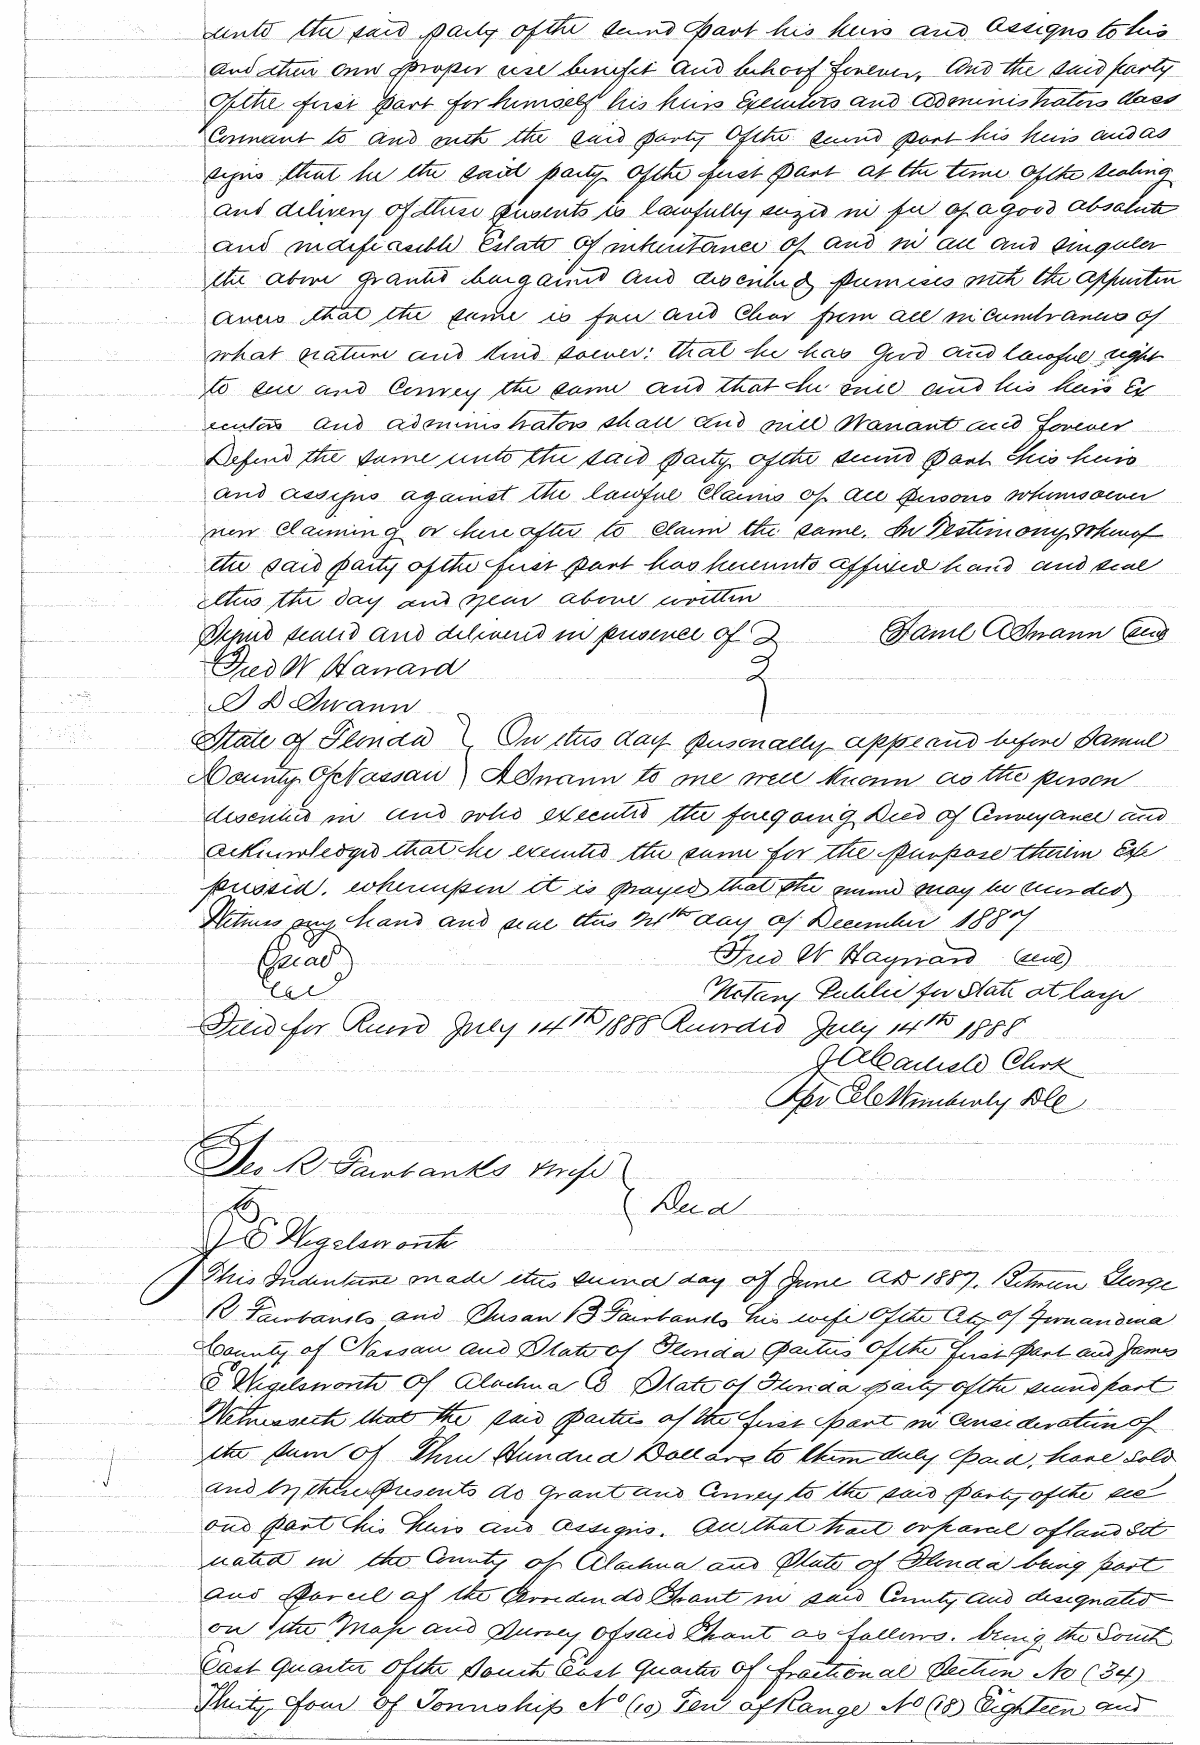 unto the said party of the second part his heirs and assigns to his
and their own proper use benefit and behoof forever. And the said party
of the first part for himself his heirs Executors and administrators does
Covenant to and with the said party of the second part his heirs and as
signs that he the said party of the first part at the time of the sealing
and delivery of these presents is lawfully seized in fee of a good absolute
and indefeasible Estate of inheritance of and in all and singular
the above granted bargained and described premises with the appurten
ances that the same is free and Clear from all incumbrances of
what nature and kind soever: that he has Good and lawful right
to sell and Convey the same and that he will and his heirs Ex
ecutors and administrators shall and will Warrant and forever
Defend the same unto the said party of the second part his heirs
and assigns against the lawful Claims of all persons whomsoever
now Claiming or here after to Claim the same. In Testimony Whereof
the said party of the first part has hereunto affixed hand and seal
this the day and year above written
Signed sealed and delivered in presence of Saml A Swann (seal)
Fred W Hayward
S D Swann
State of Florida } On this day personally appeared before Samuel
County of Nassau } A Swann to me well known as the person
described in and who executed the foregoing Deed of Conveyance and
acknowledged that he executed the same for the purpose therein Ex
pressed. whereupon it is prayed that the same may be recorded
Witness my hand and seal this day of December 1887
(Seal) Fred W Hayward (seal)
Notary Public for State at large
Filed for Record July 14th 1888 Recorded July 14th 1888
J A Carlisle Clerk
Per Wimberly DC
Geo R Fairbanks & wife }
To { Deed
J E Wigelsworth
This Indenture made this second day of June AD 1887. Between George
R Fairbanks and Susan B Fairbanks his wife of the City of Fernandina
County of Nassau and State of Florida parties of the first part and James
E Wigelsworth of Alachua Co State of Florida party of the second part
Witnesseth that the said parties of the first part in Consideration of
the sum of Three Hundred Dollars to them duly paid, have sold
and by these presents do grant and Convey to the said party of the sec
ond part his heirs and assigns. All that tract or parcel of land sit
uated in the County of Alachua and State of Florida being part
and parcel of the Arredondo Grant in said County and designated
on the Map and Survey of said Grant as follows. being the South
East Quarter of the South East Quarter of fractional Section No (34)
Thirty four of Township No (10) Ten of Range No (18) Eighteen and